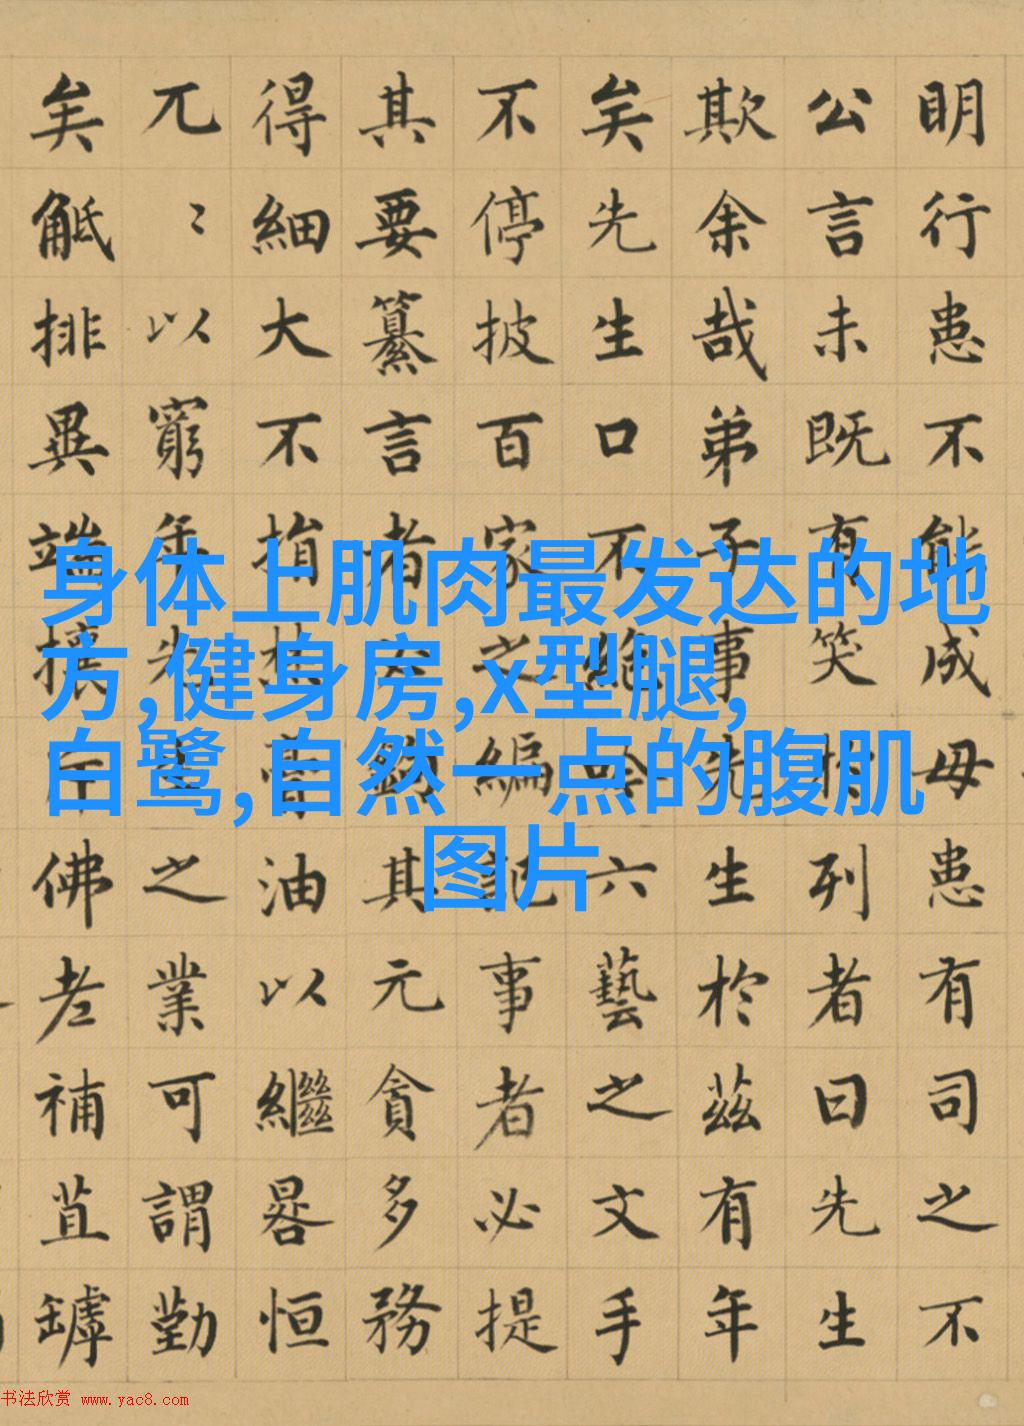 明行患不能成毋患有司之不
公言未既有笑於列者曰先生
欺余哉弟子事先生於茲有年
矣先生口不絶吟六藝之文手
不停披百家之編記事者必提
其要纂言者必鉤其元貪多務
得細大不捐焚膏油以繼晷恒
兀〻以窮年先生之業可謂勤
矣觝排異端攘斥佛老補苴罅
身体上肌肉最发达的地
方,健身房,x型腿,
白鹭,自然一点的腹肌
图片
书法欣赏 www.yac8.com